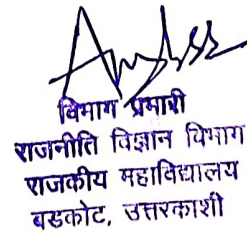 विभाग प्रभारी
राजनीति विज्ञान विभाग
राजकीय महाविद्यालय
बडकोट, उत्तरकाशी